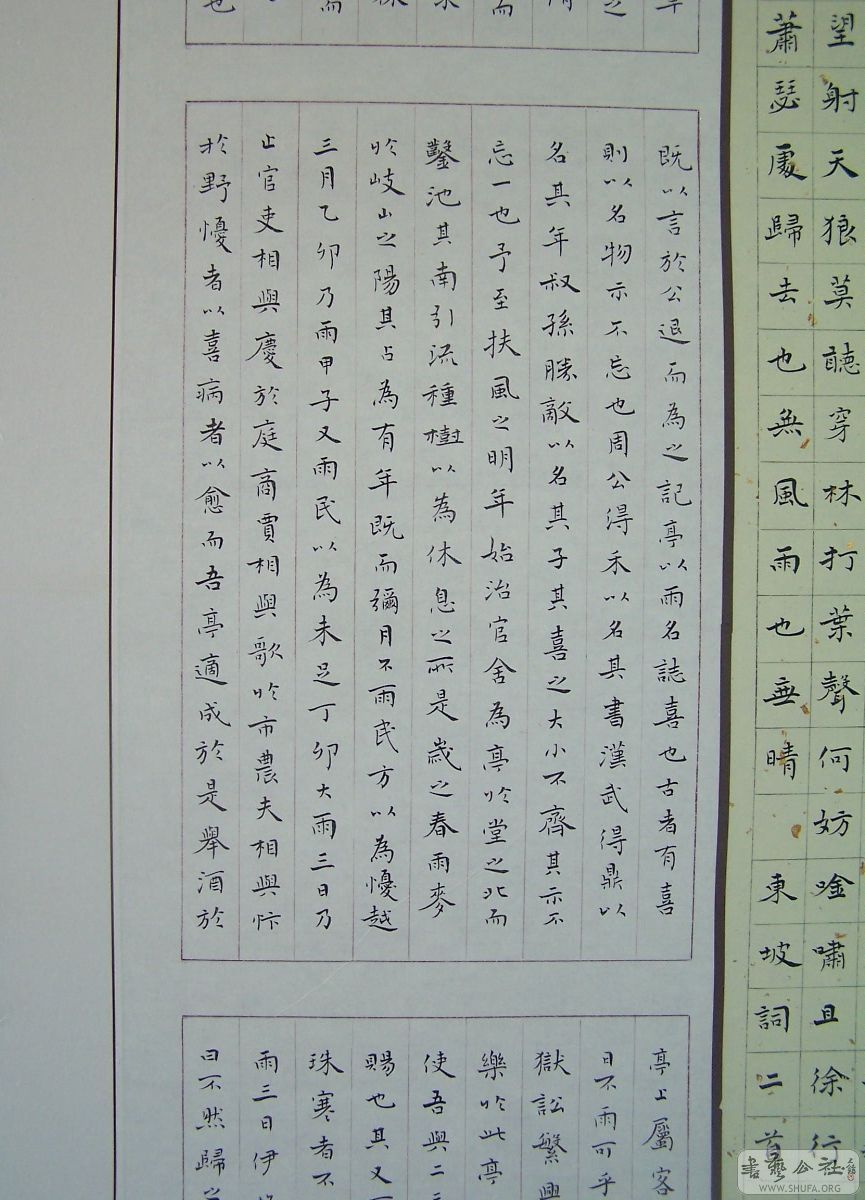 望射天狼莫聽穿林打葉聲何妨唫嘯且徐行
蕭瑟處歸去也無風雨也無晴 東坡詞二首
之
而
而
也
既以言於公退而為之記亭以雨名誌喜也古者有喜
則以名物示不忘也周公得禾以名其書漢武得鼎以
名其年叔孫勝敵以名其子其喜之大小不齊其示不
忘一也予至扶風之明年始治官舍為亭於堂之北而
鑿池其南引流種樹以為休息之所是歲之春雨麥
於岐山之陽其占為有年既而彌月不雨民方以為懮越
三月乙卯乃雨甲子又雨民以為未足丁卯大雨三日乃
止官吏相與慶於庭商賈相與歌於市農夫相與忭
於野懮者以喜病者以愈而吾亭適成於是舉酒於
亭上屬客
日不雨可乎
獄訟繁興
樂於此亭
使吾與二三
賜也其又
珠寒者不
雨三日伊
曰不然歸之
書藝公社
WWW.SHUFA.ORG